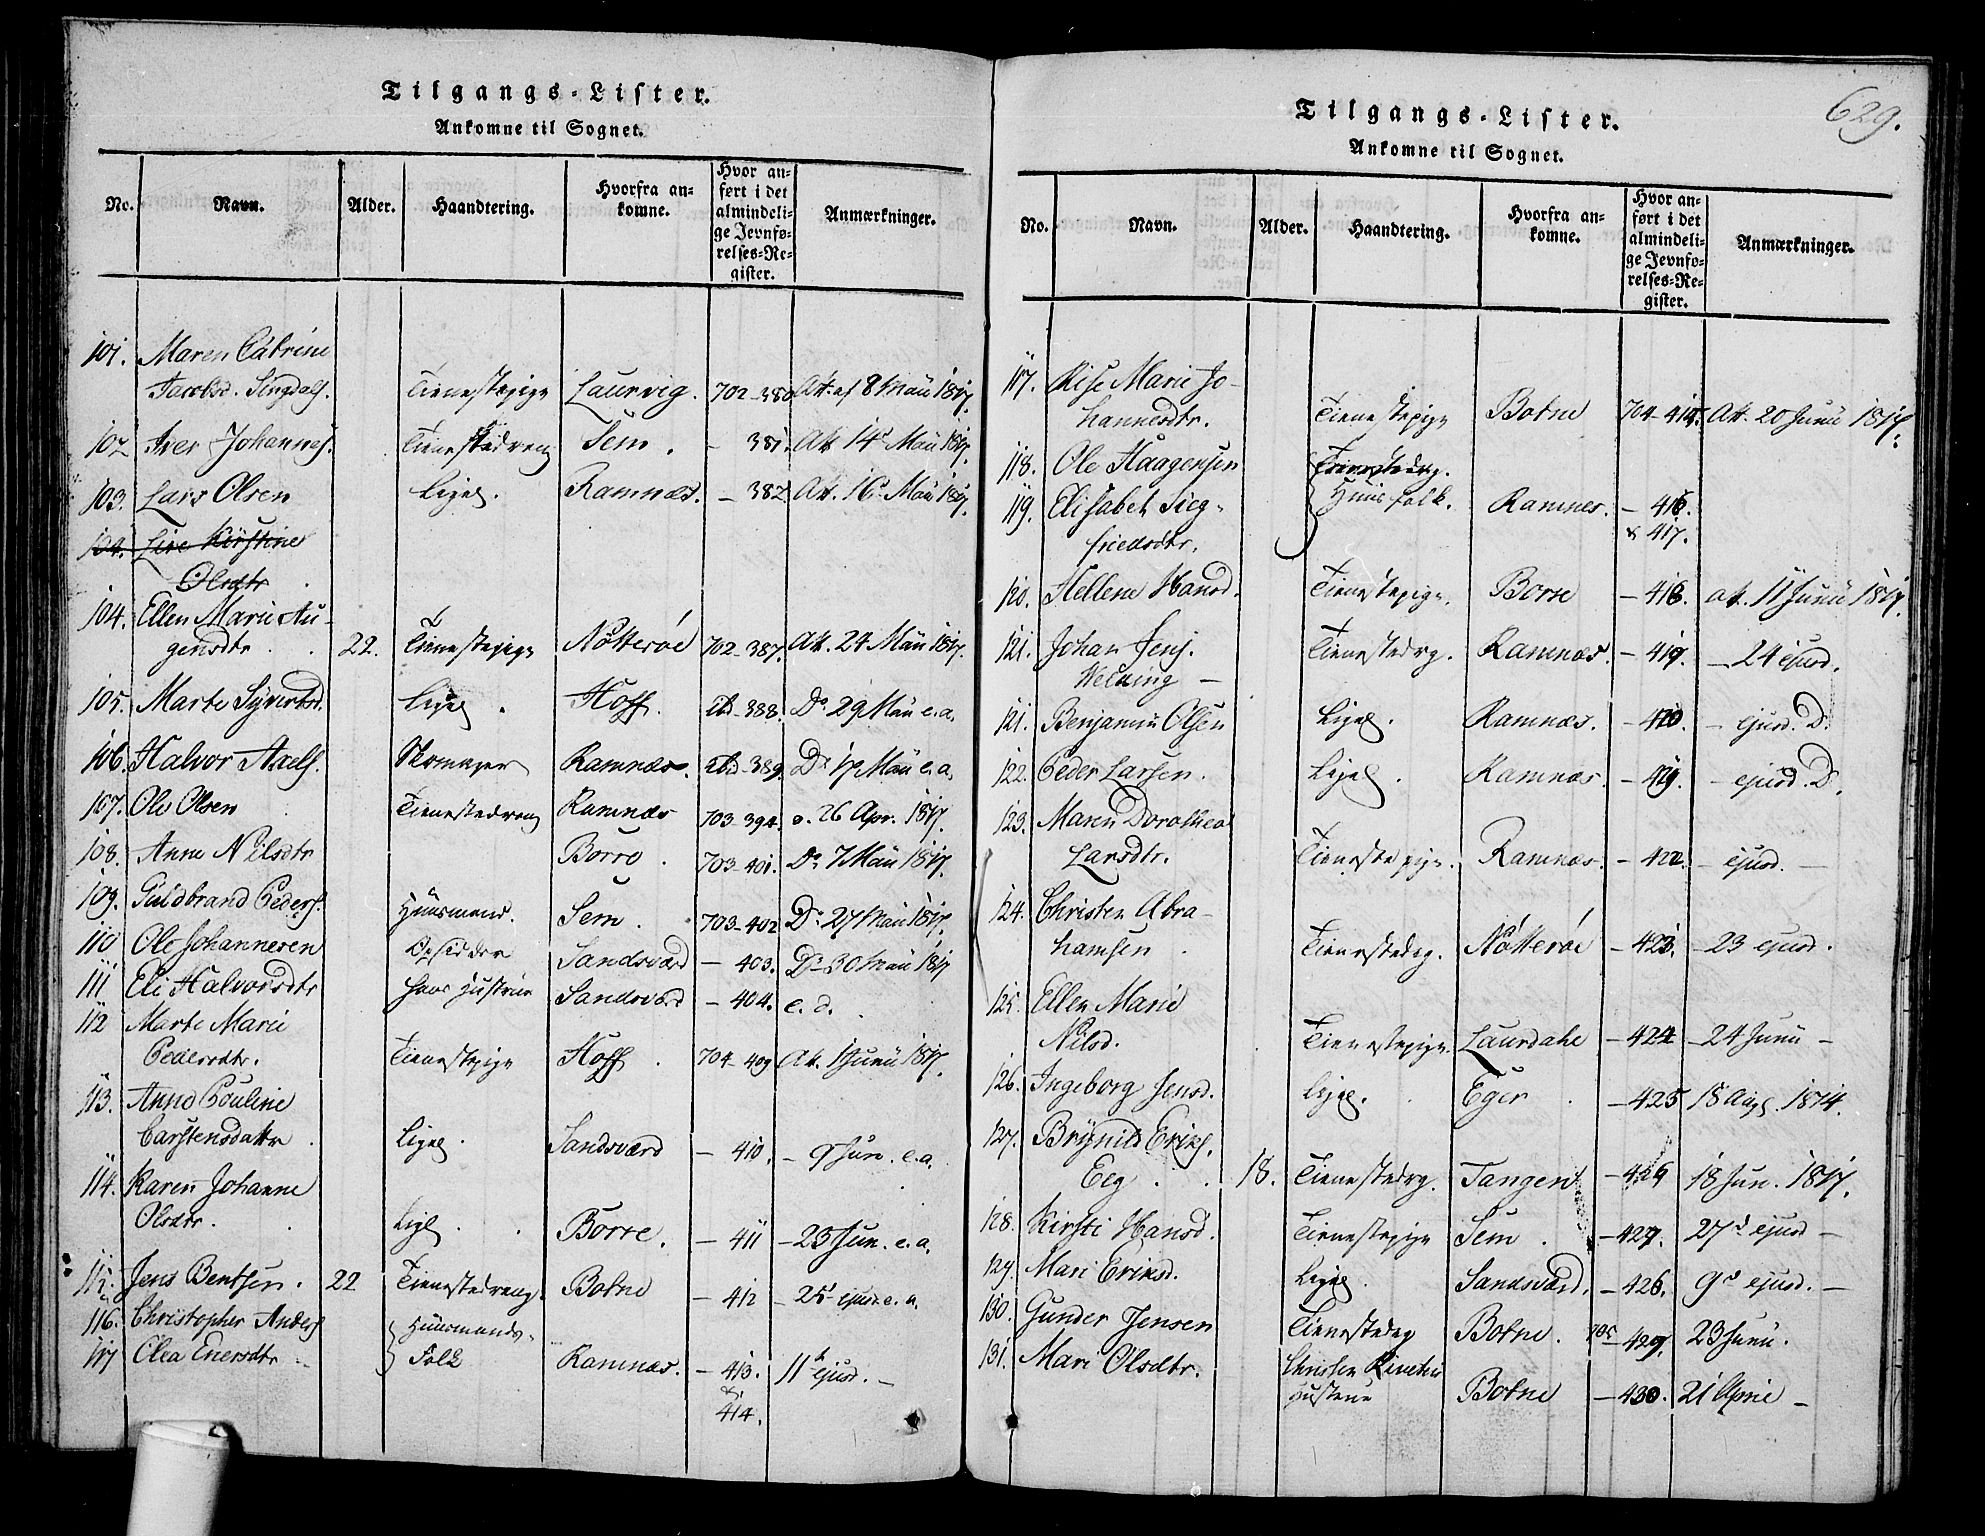 Tilgangs-Lister.
Ankomne til Sognet.
No. Navn. Alder. Haandtering. Hvorfra an-komne. Hvor an-ført i det almindeli-ge Jevnfø-relses-Re-gister. Anmærkninger.
101. Maren Catrine
Jacobsd. Tienestepige Laurvig. 702-380 Att. af 8 Maii 1817.
102 Iver Johannes. Tienestedreng Sem. - 381. Att 14 Maii 1817.
103. Lars Olsen Ligel. Ramnæs. - 382 Att. 16 Maii 1817.
104. Live Kirstine
Olsdtr
104. Ellen Marie Au-
gensdtr 22. Tienestepige Nötteröe 702-387. Att. 24 Maii 1817.
105. Marte Syvertsd. Ligel. Hoff. ibd-388. Do 29 Maii e.a.
106. Halvor Axels. Skomager Ramnæs. ibd-389. Do 17 Maii e.a.
107. Ole Olsen Tienestedreng Ramnæs 703-394. 26 Apr. 1817.
108. Anne Nilsdtr Borre. 703-401. Do 7 Maii 1817.
109. Guldbrand Peders. Huusmand. Sem. 703-402 Do 27 Maii 1817.
110 Ole Johannesen Opsidder Sandsværd - 403. Do 30 Maii 1817
111 Eli Halvorsdtr hans Hustrue Sandsværd - 404. e.d.
112 Marte Marie
Pedersdtr. Tienestepige Hoff. 704-409 Att. 1 Junii 1817.
113. Anne Pouline
Carstensdattr. Ligel. Sandsværd - 410. - 9 Jun. e.a.
114. Karen Johanne
Olsdtr. Ligl. Borre. - 411 - 23 Jun. e.a.
115. Jens Bentsen. 22 Tienestedreng. Botne - 412 - 25 ejusd. e.a.
116. Christopher Anders Huusmands-
117 Olea Enersdtr Folk Ramnæs. - 413. 11 ejusd. -
&
414.
629.
Tilgangs-Lister.
Ankomne til Sognet.
No. Navn. Alder. Haandtering. Hvorfra an-komne. Hvor an-ført i det almindeli-ge Jevnfø-relses-Re-gister. Anmærkninger.
117. Lise Marie Jo-
hannesdtr. Tienestepige Botne 704-415. Att. 20 Junii 1817.
118. Ole Haagensen Tienestedrg.
119. Elisabet Sieg- Huus folk. Ramnes. - 416.
friedsdtr. & 417.
120. Hellene Hansd. Tienestepige. Borre - 418. Att. 11 Junii 1817.
121. Johan Jens. Tienestedrg. Ramnæs. - 419. - 24 ejusd.
Welding -
121. Benjamin Olsen Ligel. Ramnæs. - 420. - ejusd. D.
122. Peder Larsen. Ligel. Ramnæs. - 421. - ejusd. D.
123. Maren Dorothea
Larsdtr. Tienestepige. Ramnæs. - 422. - ejusd. -
124. Christen Abra-
hamsen Tienestedrg. Nötteröe - 423. - 23 ejusd.
125. Ellen Marie
Nilsd. Tienestepige. Laurdahl - 424 - 24 Junii -
126. Ingeborg Jensd. Ligel. Eger - 425 18 Aug. 1814.
127. Brynild Eriks.
Eeg 18. Tienestedrg. Tangen - 426 18 Jun. 1817.
128. Kirsti Hansd. Tienestepige Sem. - 427. 27 ejusd -
129. Mari Eriksd. Ligel. Sandsværd. - 426. 9 ejusd. -
130. Gunder Jensen Tienestedrg Botne. 705 429. 23 Junii.
131. Mari Olsdtr. Christen
Hustrue Botne - 430. 21 Aprile -